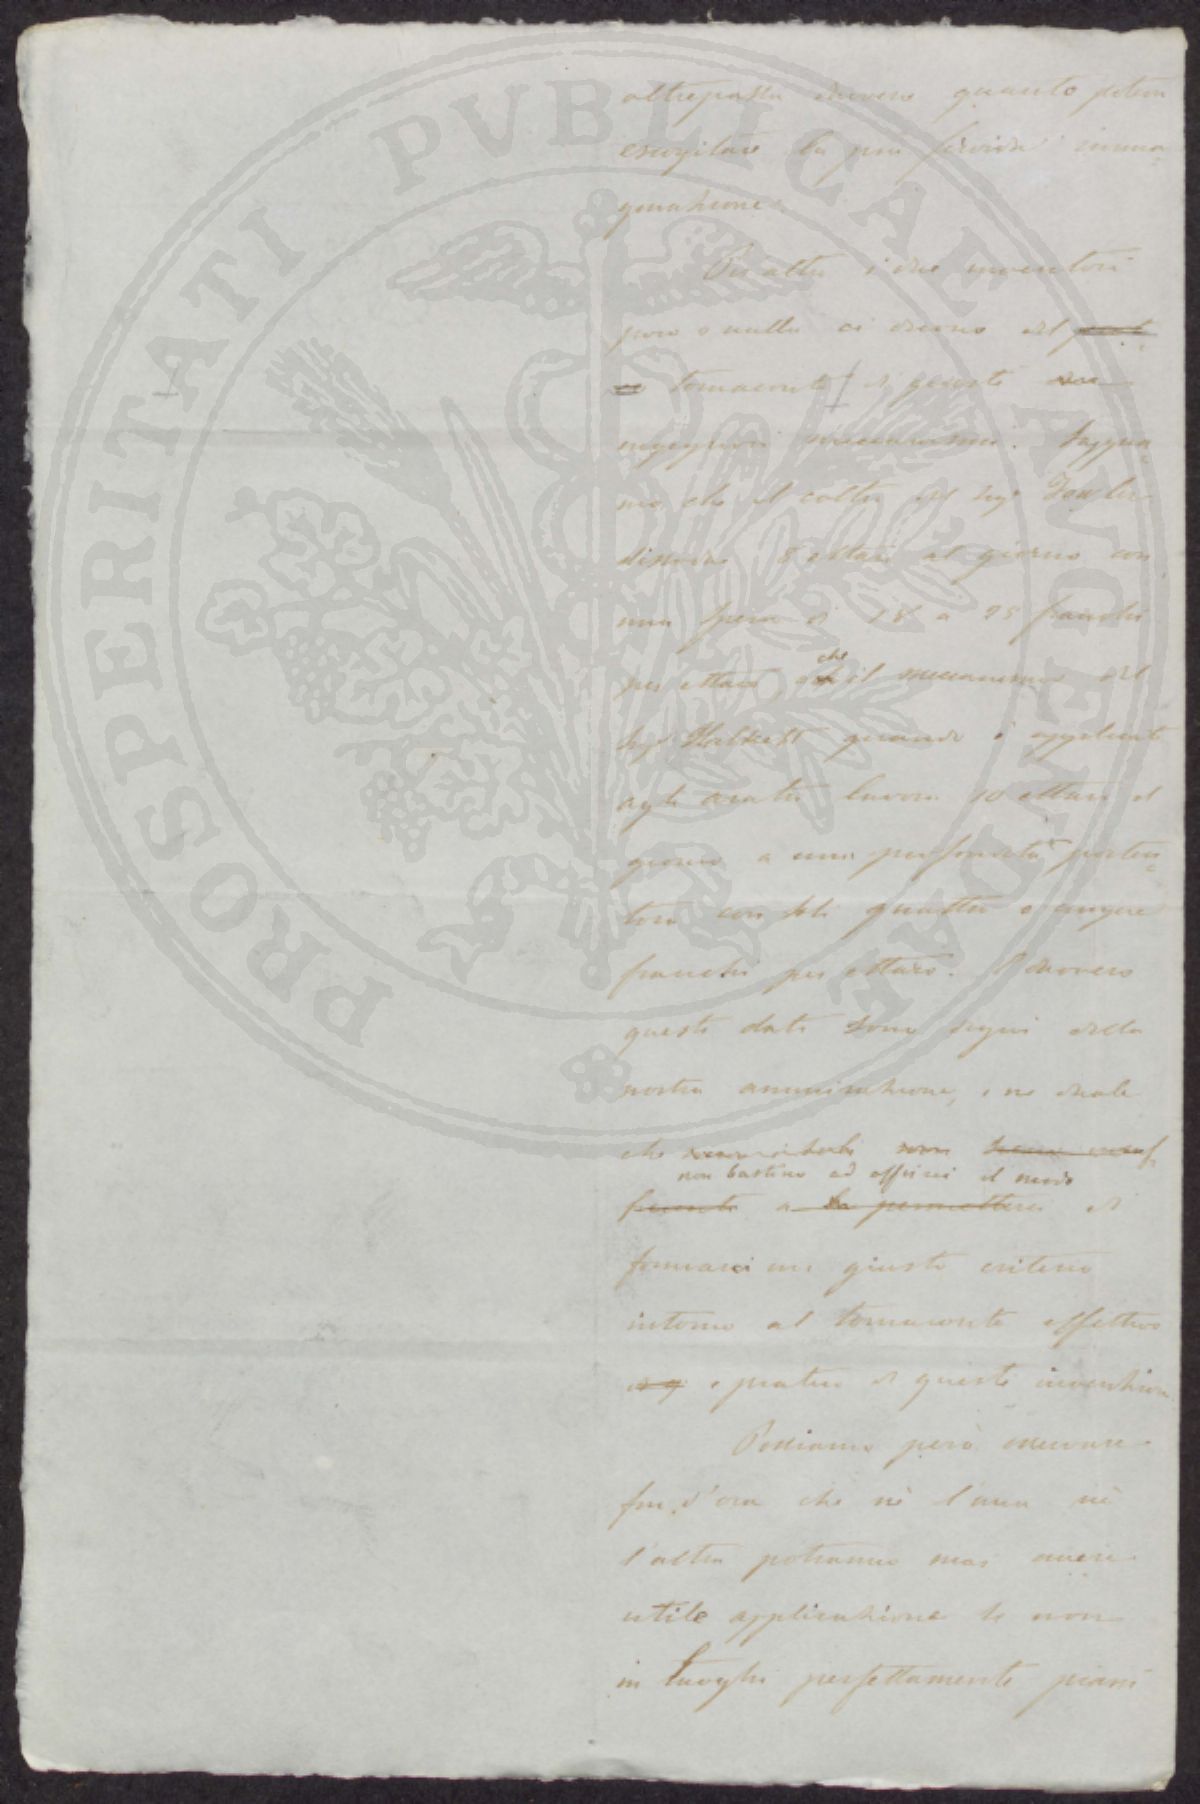 PROSPERITATI PVBLICAE AVGENDAE
oltrepassa davvero quanto poteva
escogitare la più fervida imma-
ginazione.
Per altro i due inventori
poco o nulla ci dicono del
tornaconto di questi
ingegnosi meccanismi. Sappia-
mo che il coltro del Sigr Fowler
dissoda 8 ettari al giorno con
una spesa di 18 a 25 franchi
per ettaro, che il meccanismo del
Sigr Halkett quando è applicato
agli aratri lavora 10 ettari al
giorno a una profondità porten-
tosa con soli quattro o cinque
franchi per ettaro. Davvero
questi dati sono degni della
nostra ammirazione, e ne duole
che
non bastino ad offrirci il modo
di
formarci un giusto criterio
intorno al tornaconto effettivo
e pratico di queste invenzioni
Possiamo però osservare
fin d'ora che nè l'una nè
l'altra potranno mai avere
utile applicazione se non
in luoghi perfettamente piani